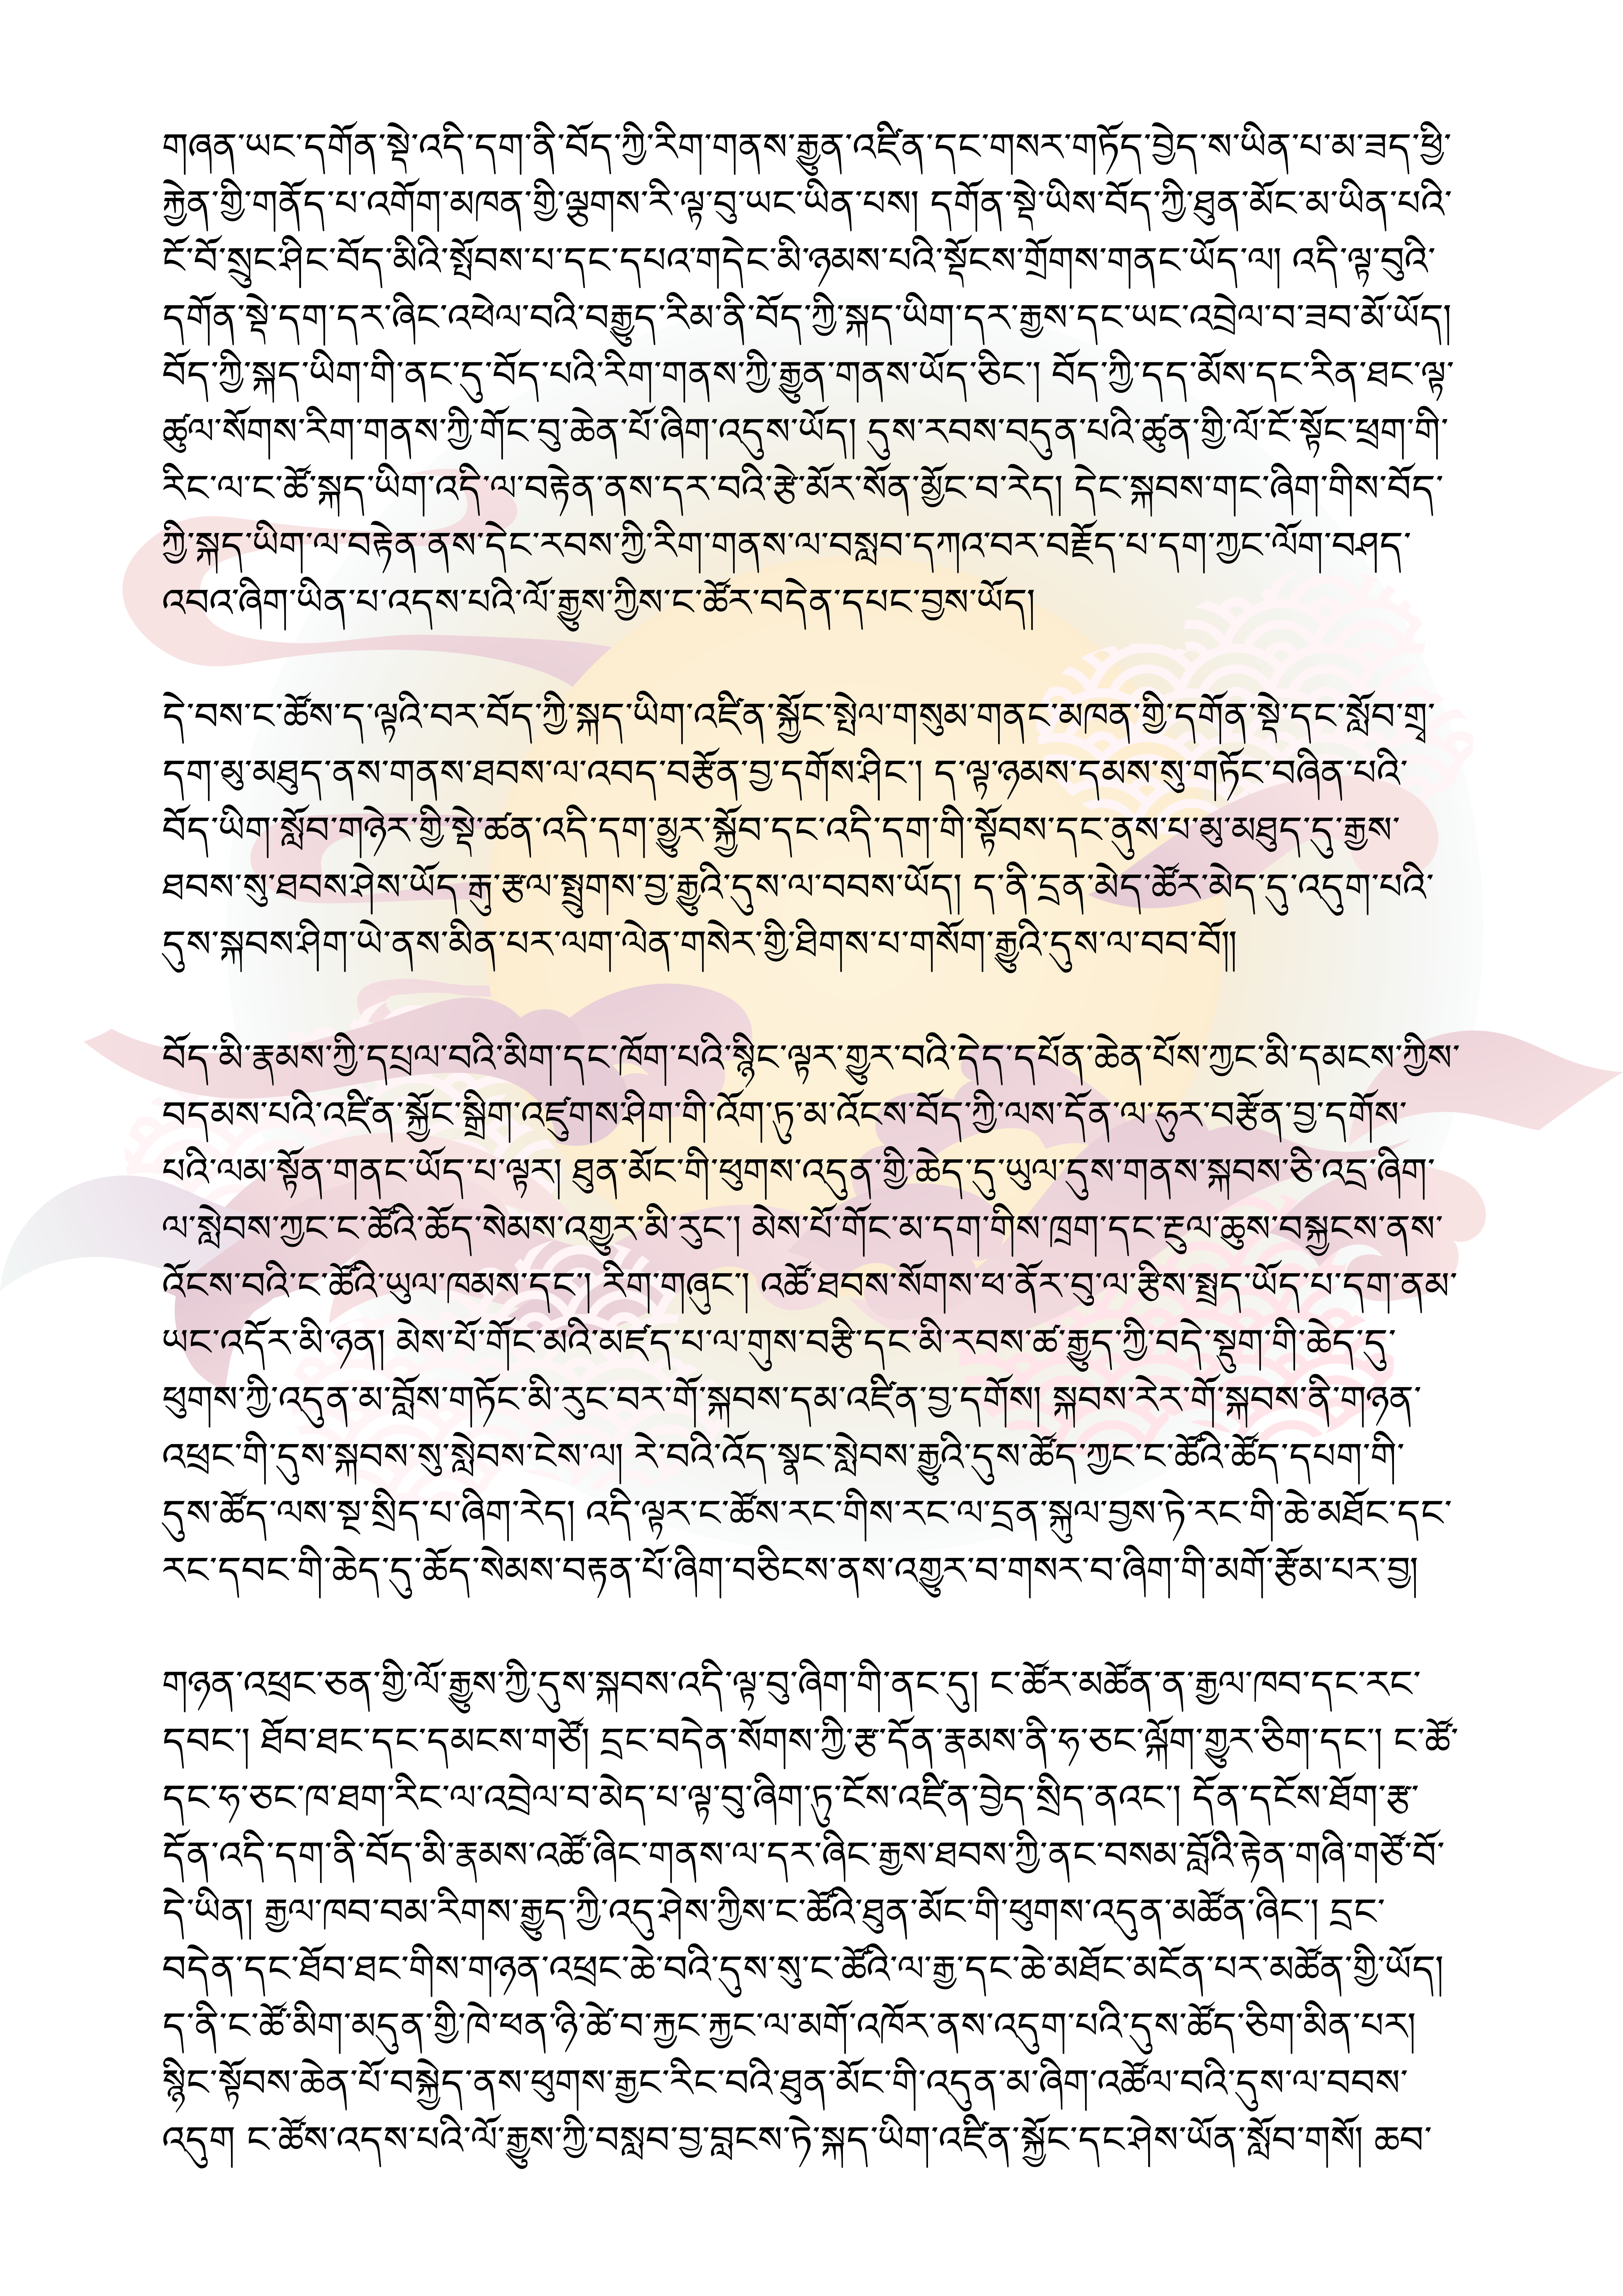 གཞན་ཡང་དགོན་སྡེ་འདི་དག་ནི་བོད་ཀྱི་རིག་གནས་རྒྱུན་འཛིན་དང་གསར་གཏོད་བྱེད་ས་ཡིན་པ་མ་ཟད་ཕྱི་
རྐྱེན་གྱི་གནོད་པ་འགོག་མཁན་གྱི་ལྕགས་རི་ལྟ་བུ་ཡང་ཡིན་པས། དགོན་སྡེ་ཡིས་བོད་ཀྱི་ཐུན་མོང་མ་ཡིན་པའི་
ངོ་བོ་སྲུང་ཤིང་བོད་མིའི་སྤོབས་པ་དང་དཔའ་གདེང་མི་ཉམས་པའི་སྡོངས་གྲོགས་གནང་ཡོད་ལ། འདི་ལྟ་བུའི་
དགོན་སྡེ་དག་དར་ཞིང་འཕེལ་བའི་བརྒྱུད་རིམ་ནི་བོད་ཀྱི་སྐད་ཡིག་དར་རྒྱས་དང་ཡང་འབྲེལ་བ་ཟབ་མོ་ཡོད།
བོད་ཀྱི་སྐད་ཡིག་གི་ནང་དུ་བོད་པའི་རིག་གནས་ཀྱི་རྒྱུན་གནས་ཡོད་ཅིང་། བོད་ཀྱི་དད་མོས་དང་རིན་ཐང་ལྟ་
ཚུལ་སོགས་རིག་གནས་ཀྱི་གོང་བུ་ཆེན་པོ་ཞིག་འདུས་ཡོད། དུས་རབས་བདུན་པའི་ཚུན་གྱི་ལོ་ངོ་སྟོང་ཕྲག་གི་
རིང་ལ་ང་ཚོ་སྐད་ཡིག་འདི་ལ་བརྟེན་ནས་དར་བའི་རྩེ་མོར་སོན་མྱོང་བ་རེད། དེང་སྐབས་གང་ཞིག་གིས་བོད་
ཀྱི་སྐད་ཡིག་ལ་བརྟེན་ནས་དེང་རབས་ཀྱི་རིག་གནས་ལ་བསླབ་དཀའ་བར་བརྗོད་པ་དག་ཀྱང་ལོག་བཤད་
འབའ་ཞིག་ཡིན་པ་འདས་པའི་ལོ་རྒྱུས་ཀྱིས་ང་ཚོར་བདེན་དཔང་བྱས་ཡོད།
དེ་བས་ང་ཚོས་ད་ལྟའི་བར་བོད་ཀྱི་སྐད་ཡིག་འཛིན་སྐྱོང་སྤེལ་གསུམ་གནང་མཁན་གྱི་དགོན་སྡེ་དང་སློབ་གྲྭ་
དག་མུ་མཐུད་ནས་གནས་ཐབས་ལ་འབད་བརྩོན་བྱ་དགོས་ཤིང་། ད་ལྟ་ཉམས་དམས་སུ་གཏོང་བཞིན་པའི་
བོད་ཡིག་སློབ་གཉེར་གྱི་སྡེ་ཚན་འདི་དག་མྱུར་སྐྱོབ་དང་འདི་དག་གི་སྟོབས་དང་ནུས་པ་མུ་མཐུད་དུ་རྒྱས་
ཐབས་སུ་ཐབས་ཤེས་ཡོད་རྒུ་རྩལ་སྤྲུགས་བྱ་རྒྱུའི་དུས་ལ་བབས་ཡོད། ད་ནི་དྲན་མེད་ཚོར་མེད་དུ་འདུག་པའི་
དུས་སྐབས་ཤིག་ཡེ་ནས་མིན་པར་ལག་ལེན་གསེར་གྱི་ཐིགས་པ་གསོག་རྒྱུའི་དུས་ལ་བབ་བོ།།
བོད་མི་རྣམས་ཀྱི་དཔྲལ་བའི་མིག་དང་ཁོག་པའི་སྙིང་ལྟར་གྱུར་བའི་དེད་དཔོན་ཆེན་པོས་ཀྱང་མི་དམངས་ཀྱིས་
བདམས་པའི་འཛིན་སྐྱོང་སྒྲིག་འཛུགས་ཤིག་གི་འོག་ཏུ་མ་འོངས་བོད་ཀྱི་ལས་དོན་ལ་ཧུར་བརྩོན་བྱ་དགོས་
པའི་ལམ་སྟོན་གནང་ཡོད་པ་ལྟར། ཐུན་མོང་གི་ཕུགས་འདུན་གྱི་ཆེད་དུ་ཡུལ་དུས་གནས་སྐབས་ཅི་འདྲ་ཞིག་
ལ་སླེབས་ཀྱང་ང་ཚོའི་ཆོད་སེམས་འགྱུར་མི་རུང་། མེས་པོ་གོང་མ་དག་གིས་ཁྲག་དང་རྔུལ་ཆུས་བསྐྱངས་ནས་
འོངས་བའི་ང་ཚོའི་ཡུལ་ཁམས་དང་། རིག་གཞུང་། འཚོ་ཐབས་སོགས་ཕ་ནོར་བུ་ལ་རྩིས་སྤྲད་ཡོད་པ་དག་ནམ་
ཡང་འདོར་མི་ཉན། མེས་པོ་གོང་མའི་མཛད་པ་ལ་གུས་བརྩི་དང་མི་རབས་ཚ་རྒྱུད་ཀྱི་བདེ་སྡུག་གི་ཆེད་དུ་
ཕུགས་ཀྱི་འདུན་མ་བློས་གཏོང་མི་རུང་བར་གོ་སྐབས་དམ་འཛིན་བྱ་དགོས། སྐབས་རེར་གོ་སྐབས་ནི་གཉན་
འཕྲང་གི་དུས་སྐབས་སུ་སླེབས་ངེས་ལ། རེ་བའི་འོད་སྣང་སླེབས་རྒྱུའི་དུས་ཚོད་ཀྱང་ང་ཚོའི་ཚོད་དཔག་གི་
དུས་ཚོད་ལས་སྔ་སྲིད་པ་ཞིག་རེད། འདི་ལྟར་ང་ཚོས་རང་གིས་རང་ལ་དྲན་སྐུལ་བྱས་ཏེ་རང་གི་ཆེ་མཐོང་དང་
རང་དབང་གི་ཆེད་དུ་ཆོད་སེམས་བརྟན་པོ་ཞིག་བཅིངས་ནས་འགྱུར་བ་གསར་བ་ཞིག་གི་མགོ་རྩོམ་པར་བྱ།
གཉན་འཕྲང་ཅན་གྱི་ལོ་རྒྱུས་ཀྱི་དུས་སྐབས་འདི་ལྟ་བུ་ཞིག་གི་ནང་དུ། ང་ཚོར་མཚོན་ན་རྒྱལ་ཁབ་དང་རང་
དབང་། ཐོབ་ཐང་དང་དམངས་གཙོ། དྲང་བདེན་སོགས་ཀྱི་རྩ་དོན་རྣམས་ནི་ཧ་ཅང་ལྐོག་གྱུར་ཅིག་དང་། ང་ཚོ་
དང་ཧ་ཅང་ཁ་ཐག་རིང་ལ་འབྲེལ་བ་མེད་པ་ལྟ་བུ་ཞིག་ཏུ་ངོས་འཛིན་བྱེད་སྲིད་ནའང་། དོན་དངོས་ཐོག་རྩ་
དོན་འདི་དག་ནི་བོད་མི་རྣམས་འཚོ་ཞིང་གནས་ལ་དར་ཞིང་རྒྱས་ཐབས་ཀྱི་ནང་བསམ་བློའི་རྟེན་གཞི་གཙོ་བོ་
དེ་ཡིན། རྒྱལ་ཁབ་བམ་རིགས་རྒྱུད་ཀྱི་འདུ་ཤེས་ཀྱིས་ང་ཚོའི་ཐུན་མོང་གི་ཕུགས་འདུན་མཚོན་ཞིང་། དྲང་
བདེན་དང་ཐོབ་ཐང་གིས་གཉན་འཕྲང་ཆེ་བའི་དུས་སུ་ང་ཚོའི་ལ་རྒྱ་དང་ཆེ་མཐོང་མངོན་པར་མཚོན་གྱི་ཡོད།
ད་ནི་ང་ཚོ་མིག་མདུན་གྱི་ཁེ་ཕན་ཉི་ཚེ་བ་རྐྱང་རྐྱང་ལ་མགོ་འཁོར་ནས་འདུག་པའི་དུས་ཚོད་ཅིག་མིན་པར།
སྙིང་སྟོབས་ཆེན་པོ་བསྐྱེད་ནས་ཕུགས་རྒྱང་རིང་བའི་ཐུན་མོང་གི་འདུན་མ་ཞིག་འཚོལ་བའི་དུས་ལ་བབས་
འདུག ང་ཚོས་འདས་པའི་ལོ་རྒྱུས་ཀྱི་བསླབ་བྱ་བླངས་ཏེ་སྐད་ཡིག་འཛིན་སྐྱོང་དང་ཤེས་ཡོན་སློབ་གསོ། ཆབ་